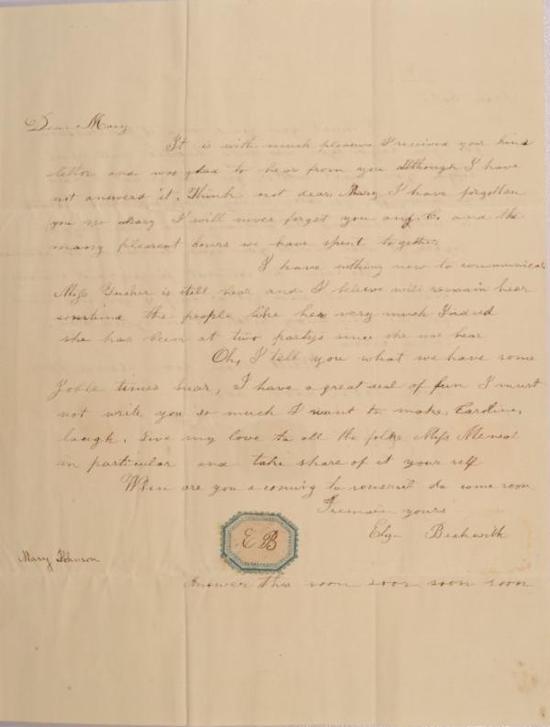 Dear Mary
It is with much pleasure I received your kind
letter and was glad to hear from you although I have
not answerd it. Think not dear Mary I have forgotten
you no Mary I will never forget you and and the
many pleasent hours we have spent together
I have nothing new to communicate
Miss is still hear and I believe will remain hear
the people like her very much Indeed
she has been at two partys since she hear
Oh, I tell you what we have some
times hear, I have a great deal of fun I must
not write you so much I want to make Caroline,
laugh. Give my love to all the folks Miss
in particular and take share of it your self
When are you a coming to do come soon
I remain yours
Beckwith
E B
Mary Johnson
Answer this soon soon soon soon